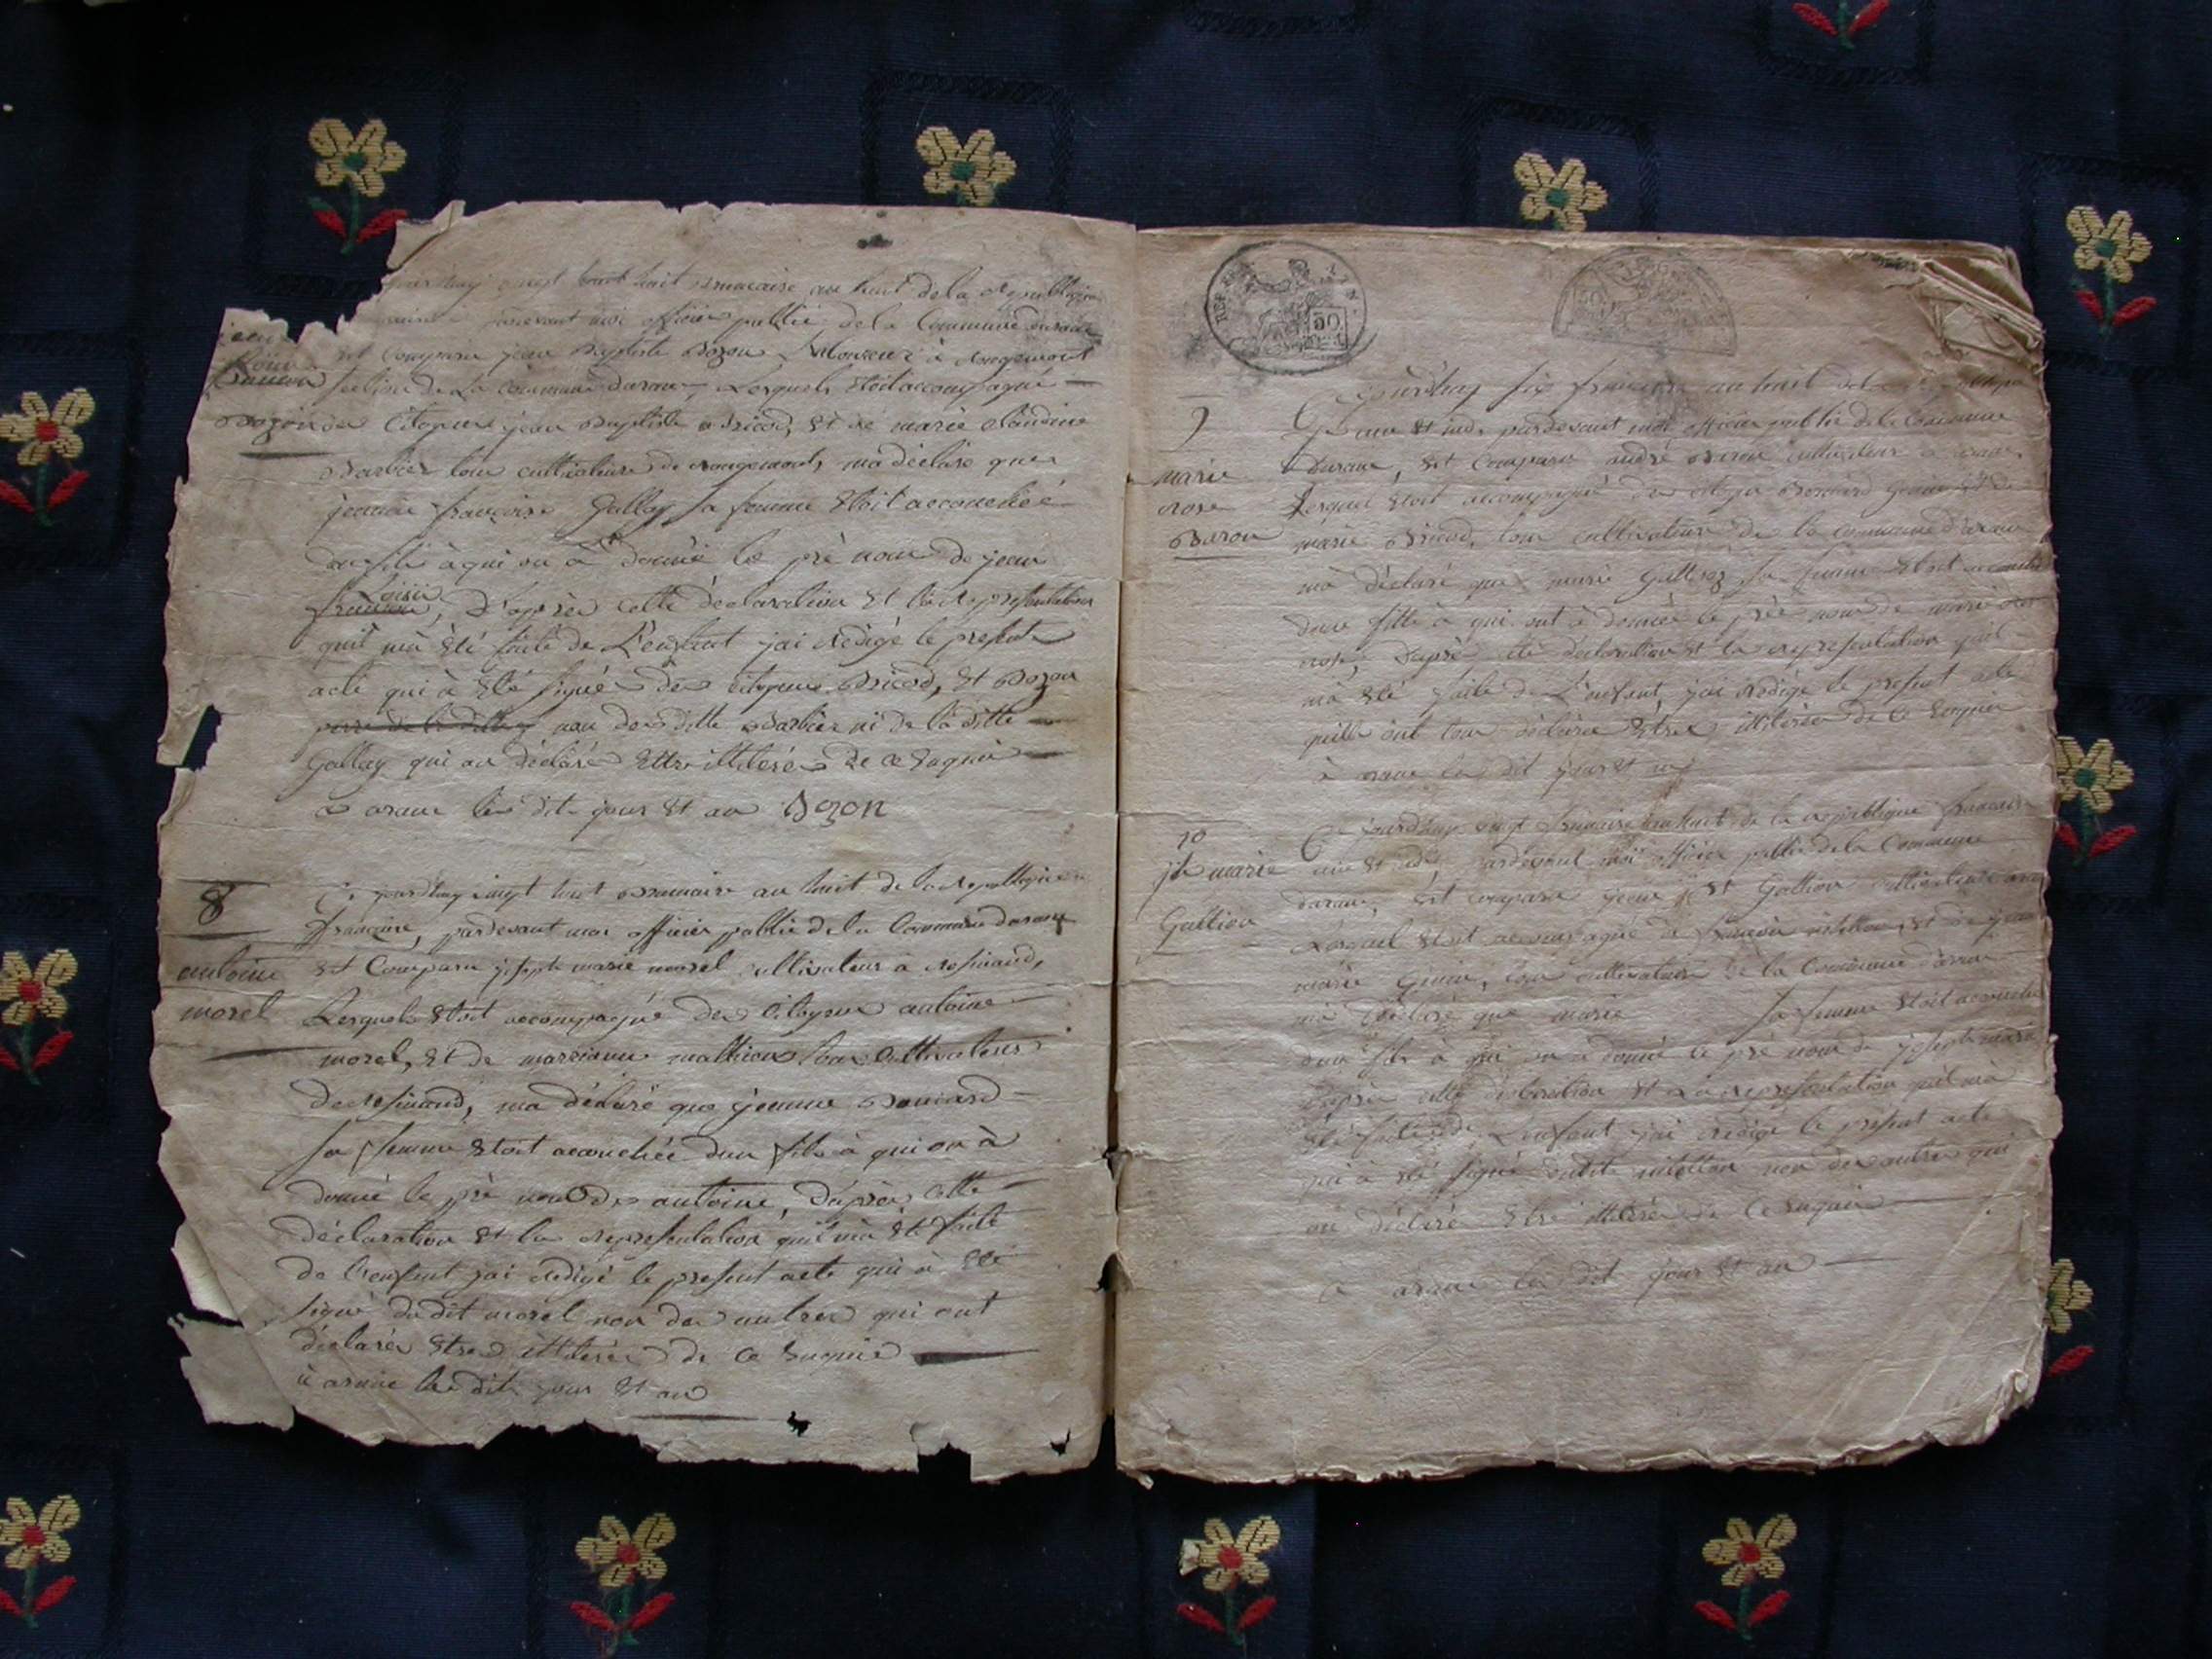 jourdhuy vingt huit brumaire an huit de la Republique
pardevant moi officier public de la Commune darane
jean
est comparu jean Baptiste Bozon laboureur à rougemont
Loüis
françois
section de La Commune darane, Lesquels Etoit accompagné
Bozon
des Citoyens jean Baptiste Bricod, Et de marie claudine
Barbier tous cultivateurs de rougemont, ma déclaré que
jeanne françoise Gallay sa femme Etoit accouchée
dun fils à qui on à donné le pré nom de jean
Loüis
françois, D'après cette déclaration Et la representation
quil mà Eté faite de L'enfant jai redigé le present
acte qui à Eté signé des citoyens Bricod, Et Bozon
non de ditte Barbier ni de la ditte
Gallay qui on déclaré Ettre illiterés de ce Enquis
a arane les dit jour Et an Bozon
8
antoine
morel
Ce jourdhuy vingt huit Brumaire an huit de la republique
francaise, pardevant moi officier public de la Commune darane
Est Comparu joseph marie morel cultivateur à resinand,
Lesquels Etoit accompagné des Citoyens antoine
morel, Et de marianne mathieu tous Cultivateurs
de resinand, ma déclaré que jeanne
sa femme Etoit accouchée dun fils à qui on à
donné le pré nom de antoine, D'après cette
déclaration Et la representation quil mà Eté faite
de l'enfant jai redigé le present acte qui à Eté
signé du dit morel non des autres qui ont
déclarés Etre illiterés de ce Enquis
à arane les dit jour Et an
REP FRA
50
50
9
marie
rose
Baron
Ce jourdhuy six frimaire an huit de la
une Et ind. pardevant moi officier public de la Commune
Darane, Est Comparu andré Baron cultivateur a arane
Lesquel Etoit accompagné des citoyen Bernard Et de
marie Bricod, tous cultivateurs de la commune d'arane
mà déclaré que marie sa femme Etoit accouchée
dune fille à qui ont à donnée le pré nom de marie
rose, Daprès cette déclaration Et la representation quil
mà Eté faite de L'enfant, jai redigé le present acte
quils ont tous déclarés Etre illiterés de ce Enquis
à arane les dit jour et an
10
jh marie
Gallion
Ce jourdhuy vingt frimaire an huit de la republique francaise
une Et ind. pardevant moi officier public de la Commune
darane, Est comparu jean Gallion cultivateur
Lesquel Etoit accompagné de françois Et de jean
marie Genin, tous cultivateurs de la Commune darane
mà Déclaré que marie sa femme Etoit accouchée
dun fils à qui on a donné le pré nom de joseph marie
Daprès cette déclaration Et La representation quil mà
Eté faite de Lenfant jai redigé le present acte
qui à Eté signé non des autres qui
on déclaré Etre illiterés de Ce Enquis
à arane les dit jour Et an